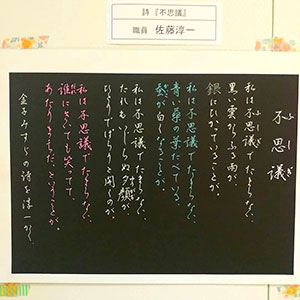 詩『不思議』
職員 佐藤淳一
不思議
ふしぎ
私は不思議でたまらない、
黒い雲からふる雨が、
銀にひかっていることが。
私は不思議でたまらない、
青い桑の葉たべている、
蚕が白くなることが。
私は不思議でたまらない、
たれもいじらぬ夕顔が、
ひとりでぱらりと開くのが。
私は不思議でたまらない、
誰にきいても笑ってて、
あたりまえだ、ということが。
金子みすゞの詩を淳一かく